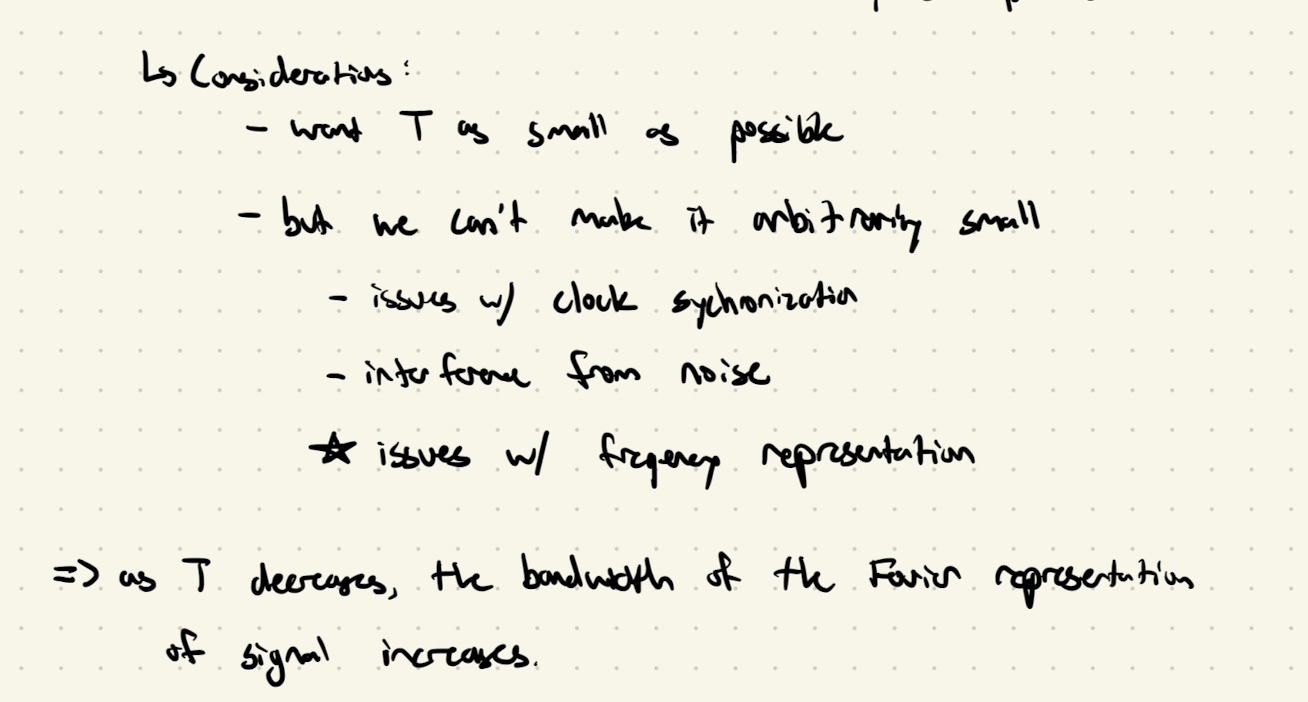 ↳ Considerations:
- want T as small as possible
- but we can't make it arbitrarily small
- issues w/ clock sychronization
- interference from noise
☆ issues w/ freqency representation
=> as T decreases, the bandwidth of the Fourier representation
of signal increases.